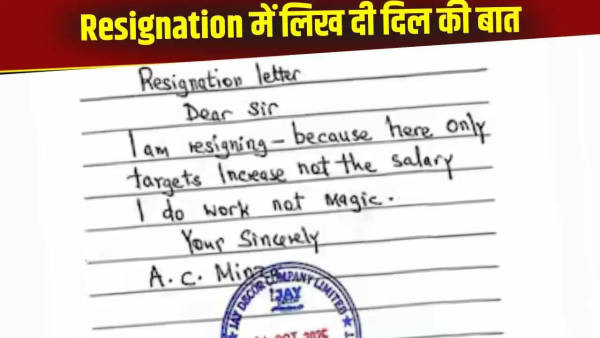 Resignation में लिख दी दिल की बात
Resignation letter
Dear Sir
I am resigning - because here only
targets Increase not the salary
I do work not Magic.
Your Sincerely
A. C.
JAY DECOR COMPANY LIMITED
JAY
OCT 2025